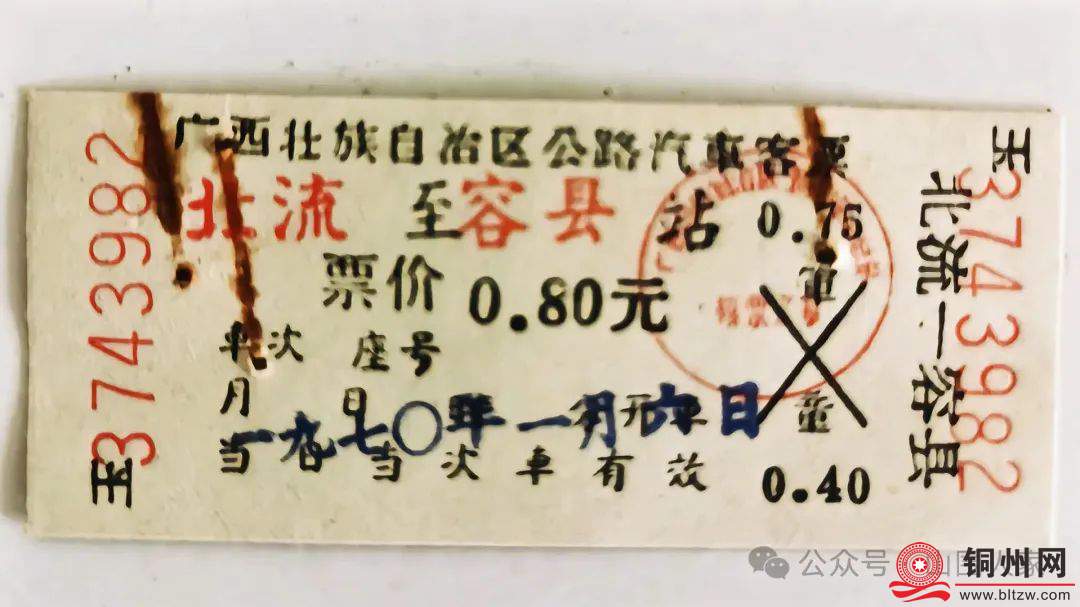 广西壮族自治区公路汽車客票
北流 至 容县 站 0.75
票价 0.80元
車次 座号
月 日
一九七〇年一月六日
当日当次車有效
童
0.40
玉3743982
玉3743982
北流—容县
公众号
铜州网
www.bltzw.com